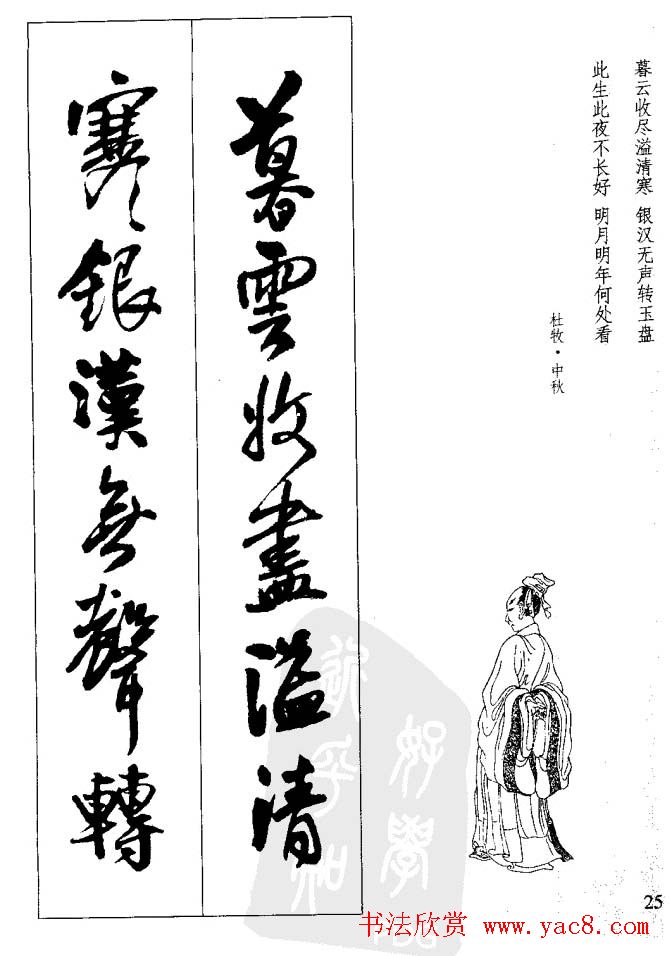 暮云收尽溢清寒 银汉无声转玉盘
此生此夜不长好 明月明年何处看
杜牧·中秋
暮雲收盡溢清
寒銀漢無聲轉
好學
25
书法欣赏 www.yac8.com